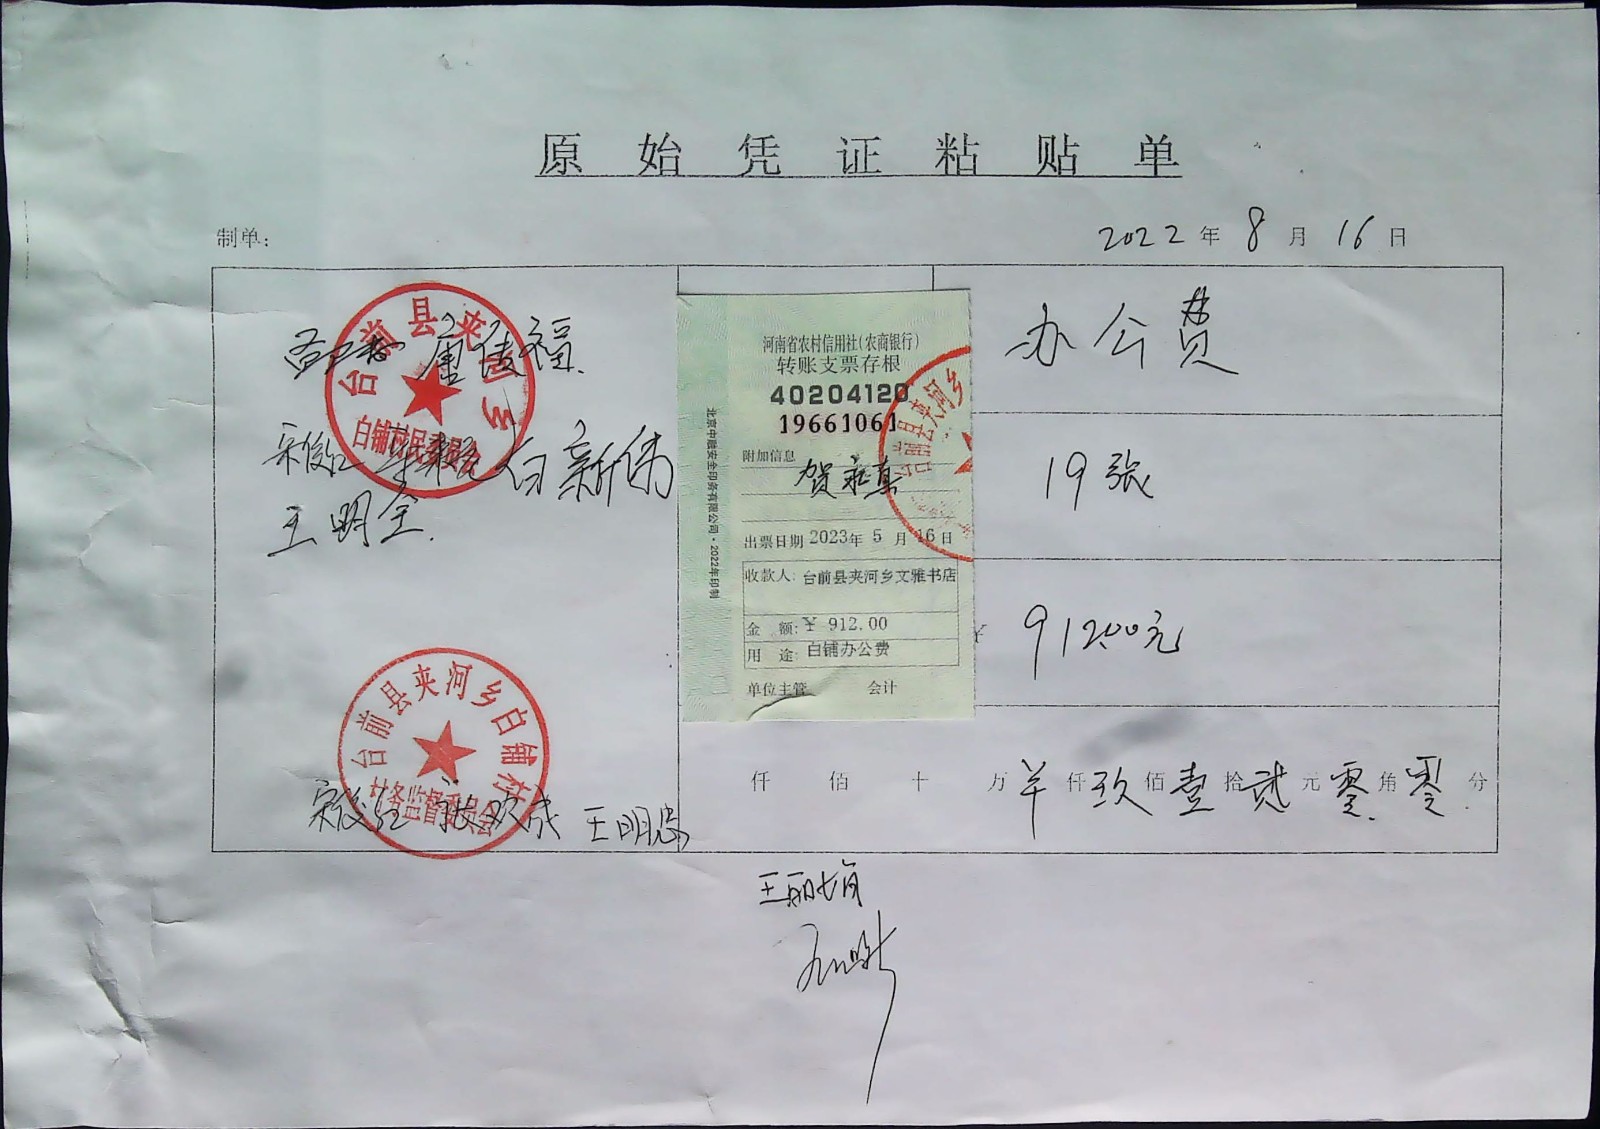 原始凭证粘贴单
制单:
2022年8月16日
台前县夹河乡
白铺村民委员会
白新伟
王明全
台前县夹河乡白铺村
村务监督委员会
张欢成 王明忠
河南省农村信用社(农商银行)
转账支票存根
40204120
19661061
附加信息
贺永真
出票日期 2023年5月16日
收款人: 台前县夹河乡文雅书店
金 额: ¥ 912.00
用 途: 白铺办公费
单位主管 会计
台前县夹河乡
办公费
19张
¥ 912.00元
仟 佰 十 万 羊 仟 玖 佰 壹 拾 贰 元 零 角 零 分